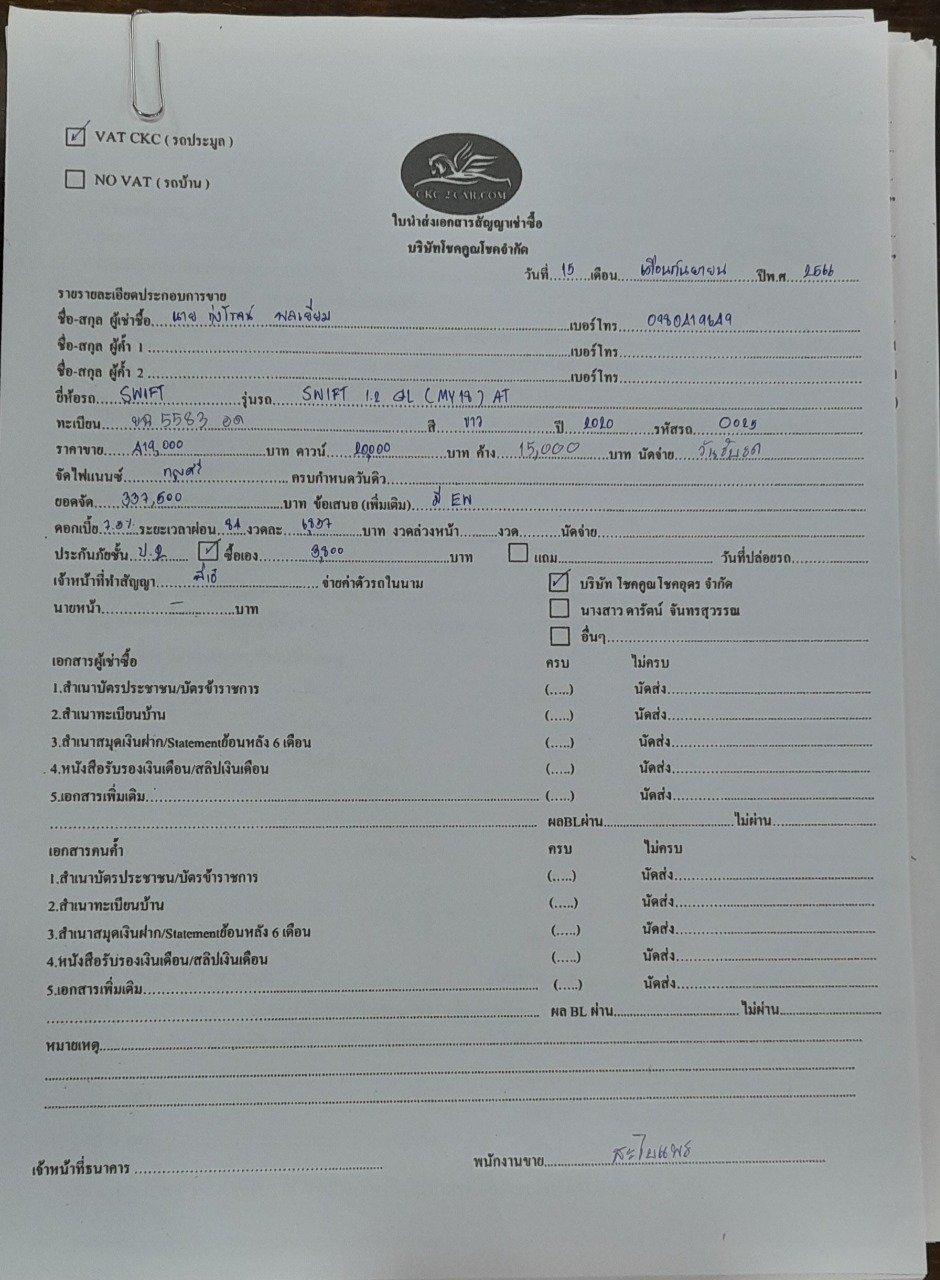 VAT CKC ( รถประมูล )
NO VAT ( รถบ้าน )
CKC 2 CAR.COM
ใบนำส่งเอกสารสัญญาเช่าซื้อ
บริษัทโชคคูณโชคจำกัด
วันที่ 15 เดือน เดือนกันยายน ปีพ.ศ. 2566
รายรายละเอียดประกอบการขาย
ชื่อ-สกุล ผู้เช่าซื้อ นาย รุ่งโรจน์ พลเยี่ยม เบอร์โทร
ชื่อ-สกุล ผู้ค้ำ 1 เบอร์โทร
ชื่อ-สกุล ผู้ค้ำ 2 เบอร์โทร
ยี่ห้อรถ SWIFT รุ่นรถ SWIFT 1.2 GL (MY18) AT
ทะเบียน 5583 อด สี ขาว ปี 2020 รหัสรถ 0025
ราคาขาย 419,000 บาท ดาวน์ 20,000 บาท ค้าง 15,000 บาท นัดจ่าย
จัดไฟแนนซ์ กรุงศรี ครบกำหนดวันคิว
ยอดจัด 337,500 บาท ข้อเสนอ (เพิ่มเติม) มี EW
ดอกเบี้ย ระยะเวลาผ่อน 84 งวดละ 6837 บาท งวดล่วงหน้า งวด นัดจ่าย
ประกันภัยชั้น ป.2 ซื้อเอง 3,800 บาท แถม วันที่ปล่อยรถ
เจ้าหน้าที่ทำสัญญา จ่ายค่าตัวรถในนาม บริษัท โชคคูณโชคอุดร จำกัด
นายหน้า - บาท นางสาว ดารัตน์ จันทรสุวรรณ
อื่นๆ
เอกสารผู้เช่าซื้อ ครบ ไม่ครบ
1.สำเนาบัตรประชาชน/บัตรข้าราชการ (.....) นัดส่ง
2.สำเนาทะเบียนบ้าน (.....) นัดส่ง
3.สำเนาสมุดเงินฝาก/Statementย้อนหลัง 6 เดือน (.....) นัดส่ง
4.หนังสือรับรองเงินเดือน/สลิปเงินเดือน (.....) นัดส่ง
5.เอกสารเพิ่มเติม (.....) นัดส่ง
ผลBLผ่าน ไม่ผ่าน
เอกสารคนค้ำ ครบ ไม่ครบ
1.สำเนาบัตรประชาชน/บัตรข้าราชการ (.....) นัดส่ง
2.สำเนาทะเบียนบ้าน (.....) นัดส่ง
3.สำเนาสมุดเงินฝาก/Statementย้อนหลัง 6 เดือน (.....) นัดส่ง
4.หนังสือรับรองเงินเดือน/สลิปเงินเดือน (.....) นัดส่ง
5.เอกสารเพิ่มเติม (.....) นัดส่ง
ผล BL ผ่าน ไม่ผ่าน
หมายเหตุ
เจ้าหน้าที่ธนาคาร พนักงานขาย สะไบแพร